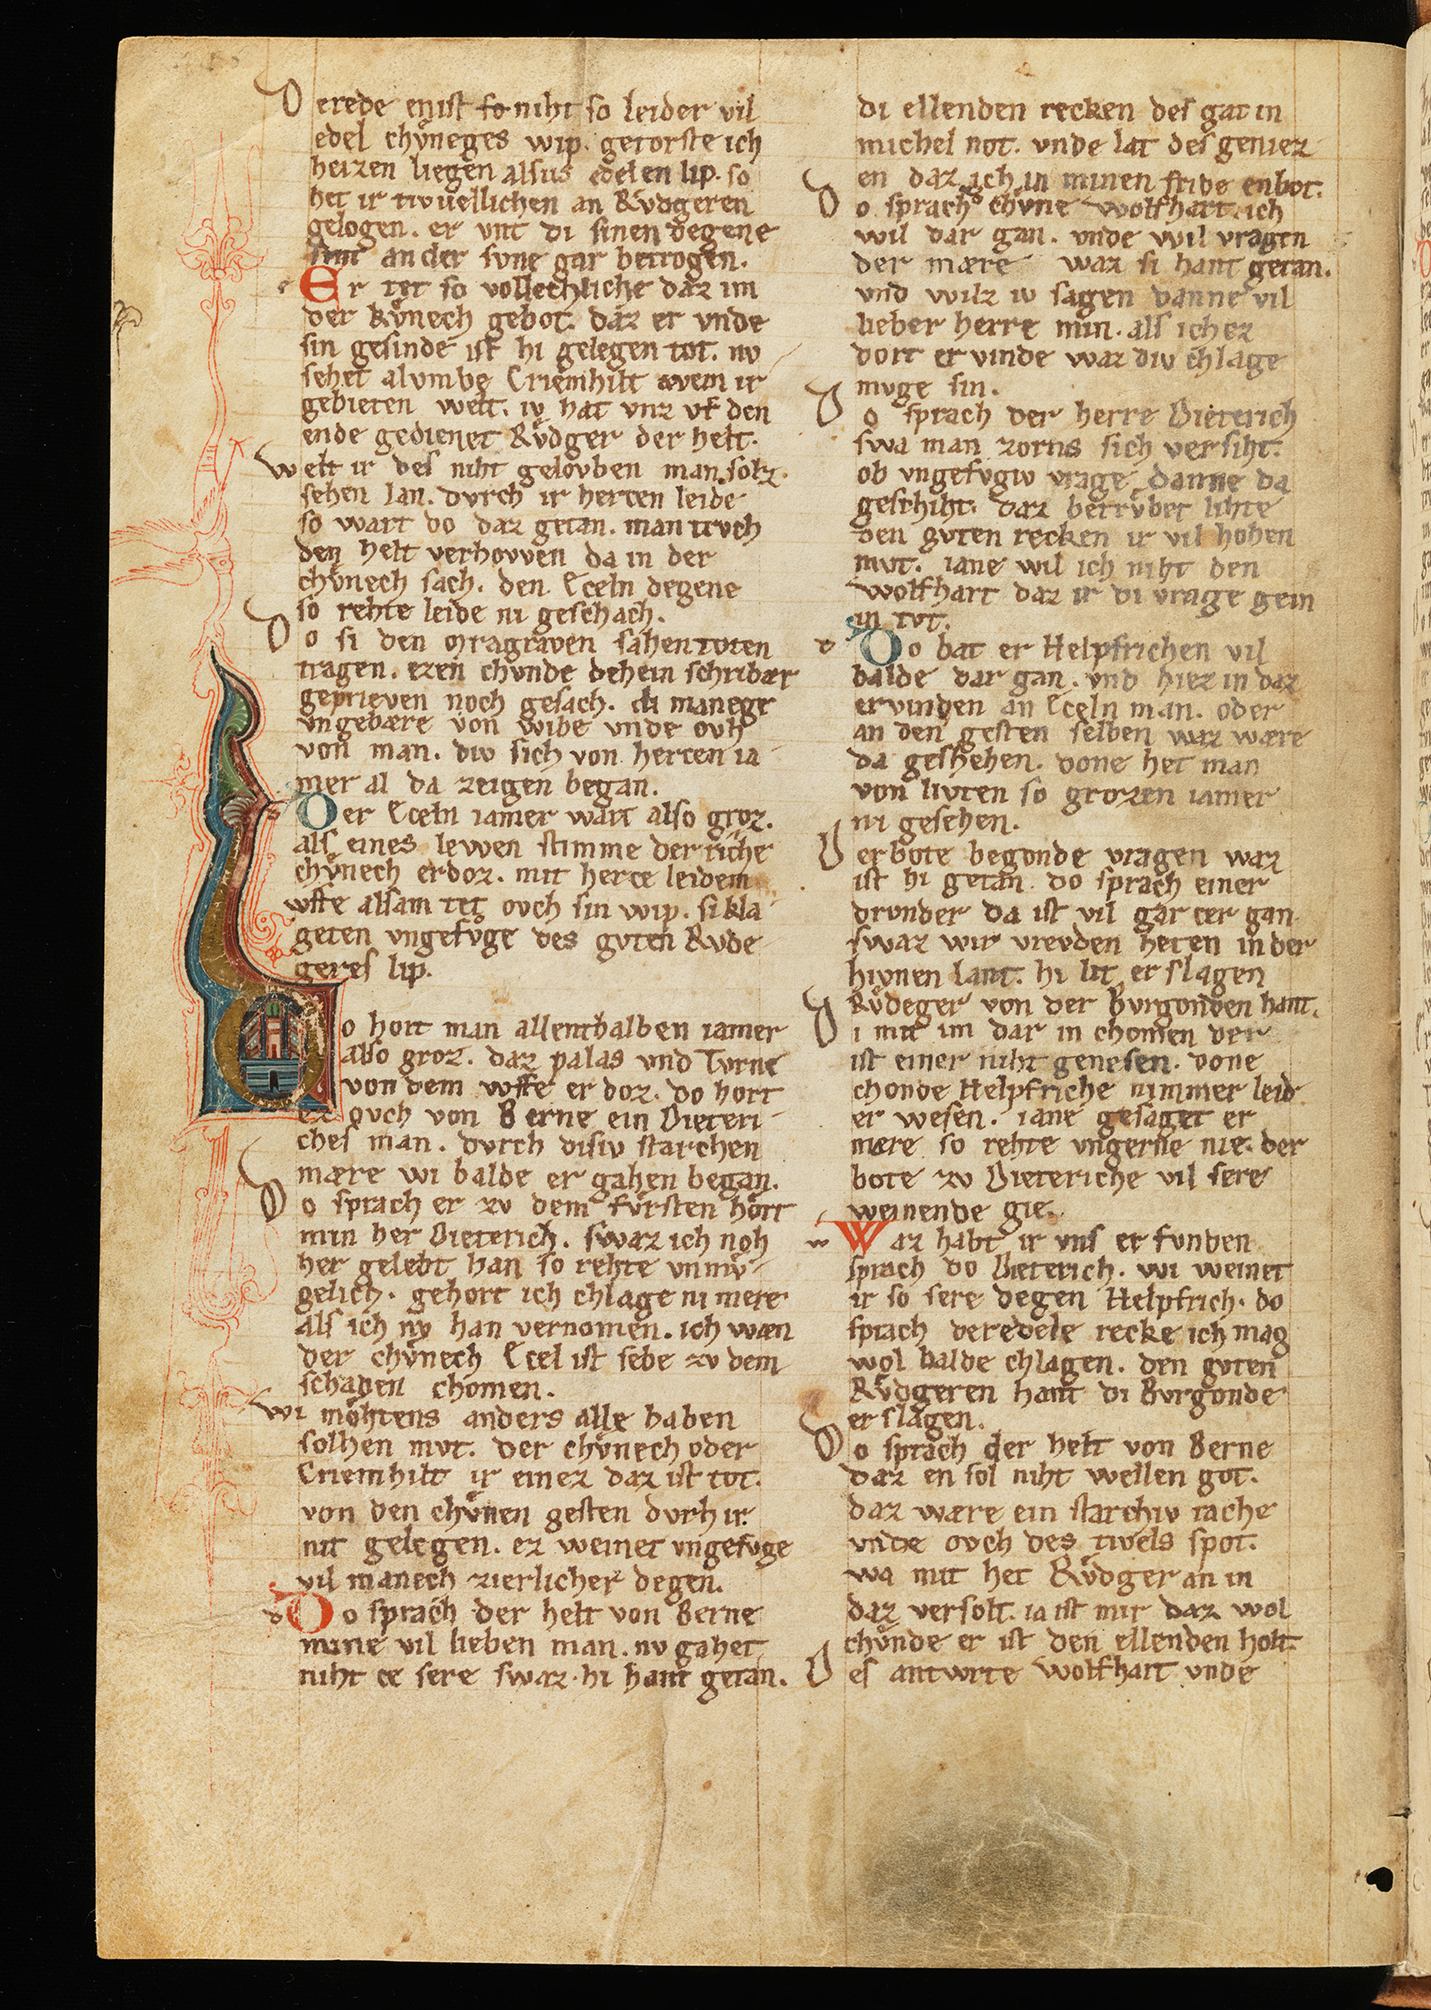 D erede enist so niht so leider vil
edel chv̊neges wip. getorste ich
heizen liegen alsus edelen lip. so
het ir tivuellichen an Rv̊dgeren
gelogen. er vnt di sinen degene
sint an der svne gar betrogen.
Er tet so vollechliche daz im
der kv̊nech gebot. daz er vnde
sin gesinde ist hi gelegen tot. nv
sehet alvmbe Criemhilt wem ir
gebieten welt. iv hat vnz vf den
ende gedienet Rv̊dger der helt.
welt ir des niht gelovben man solz
sehen lan. dvrch ir hercen leide
so wart do daz getan. man trvch
den helt verhowen da in der
chv̊nech sach. den Eceln degene
so rehte leide ni geschach.
D o si den mragraven sahen toten
tragen. ezen chvnde dehein schribær
geprieven noch gesach. di manege
vngebære von wibe vnde ovh
von man. div sich von hercen ia
mer al da zeigen began.
Der Eceln iamer wart also groz.
als eines lewen stimme der riche
chv̊nech erdoz. mit herce leidem
wfte alsam tet ovch sin wip. si kla
geten vngefvge des gvten Rvde
geres lip.
Do hort man allenthalben iamer
also groz. daz palas vnd Tvrne
von dem wffe er doz. do hort
ez ovch von Berne ein Dieteri
ches man. dvrch disiv starchen
mære wi balde er gahen began.
D o sprach er zv dem fv̊rsten hort
min her Dieterich. swaz ich noh
her gelebt han so rehte vnmv̊
gelich. gehort ich chlage ni mere
als ich nv han vernomen. ich wæn
der chv̊nech Ecel ist selbe zv dem
schaden chomen.
wi mo̊htens anders alle haben
solhen mvt. der chv̊nech oder
Criemhilt ir einez daz ist tot.
von den chv̊nen gesten dvrh ir
nit gelegen. ez weinet vngefvge
vil manech zierlicher degen.
Do sprach der helt von Berne
mine vil lieben man. nv gahet
niht ce sere swaz hi hant getan.
di ellenden recken des gat in
michel not. vnde lat des geniez
en daz ich in minen fride enbot.
D o sprach d̾ chv̊ne wolfhart ich
wil dar gan. vnde wil vragen
der mære waz si hant getan.
vnd wilz iv sagen danne vil
lieber herre min. als ich ez
dort er vinde waz div chlage
mvge sin.
D o sprach der herre Dieterich
swa man zorns sich versiht.
ob vngefvgiv vrage danne da
geschiht. daz betrv̊bet lihte
den gvten recken ir vil hohen
mvt. iane wil ich niht den
wolfhart daz ir di vrage gein
in tvt.
Do bat er Helpfrichen vil
balde dar gan. vnd hiez in daz
ervinden an Eceln man. oder
an den gesten selben waz wære
da geshehen. done het man
von livten so grozen iamer
ni gesehen.
D er bote begonde vragen waz
ist hi getan do sprach einer
drvnder da ist vil gar cer gan
swaz wir vrevden heten in der
hivnen lant. hi lit er slagen
Rv̊deger von der Bvrgonden hant.
D i mit im dar in chomen der
ist einer niht genesen. done
chonde Helpfriche nimmer leid
er wesen. iane gesaget er
mære so rehte vngerne nie. der
bote zv Dieteriche vil sere
weinende gie.
Waz habt ir vns er fvnden
sprach do Dieterich. wi weinet
ir so sere degen Helpfrich. do
sprach der edele recke ich mag
wol balde chlagen. den gvten
Rv̊dgeren hant di Bvrgonde
er slagen.
D o sprach der helt von Berne
daz en sol niht wellen got.
daz wære ein starchiv rache
vnde ovch des tivels spot.
wa mit het Rv̊dger an in
daz versolt. ia ist mir daz wol
chv̊nde er ist den ellenden holt.
D es antwrte wolfhart vnde